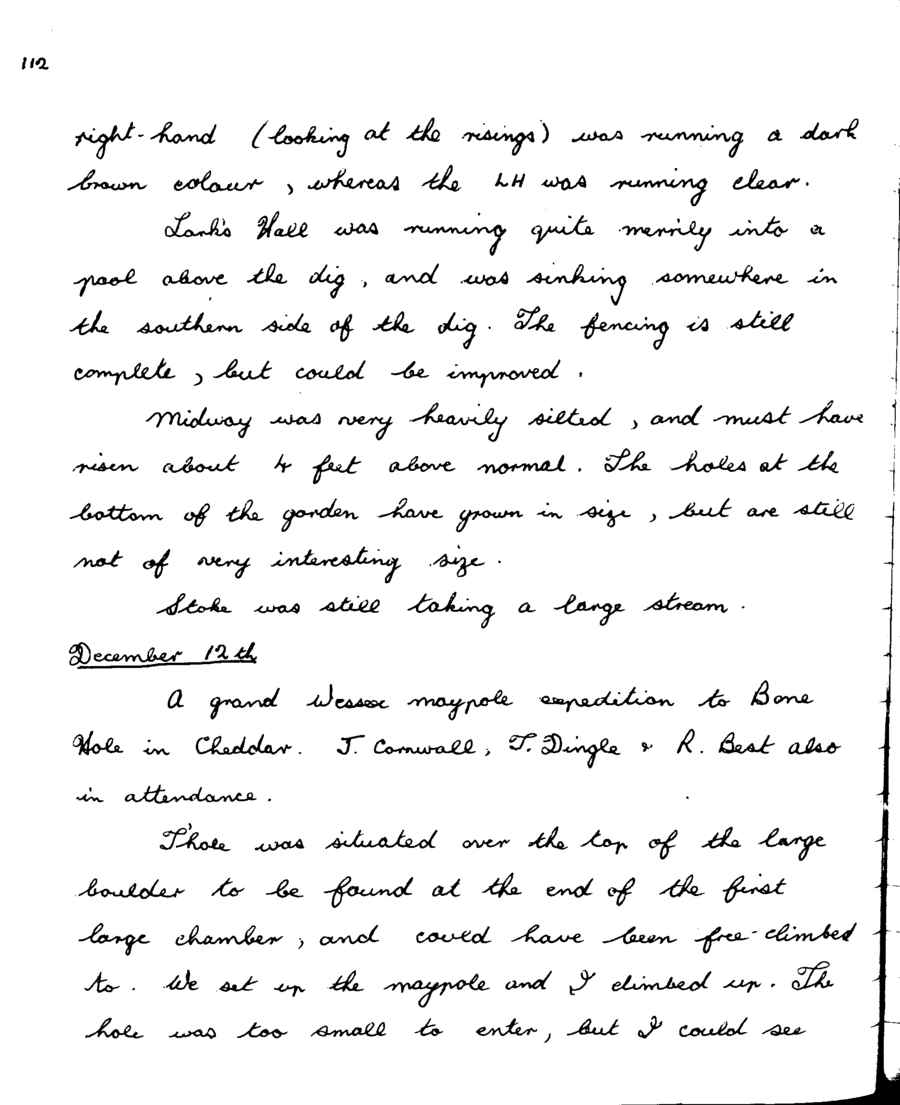 112
right-hand (looking at the risings) was running a dark
brown colour, whereas the LH was running clear.
Lank's Hall was running quite merrily into a
pool above the dig, and was sinking somewhere in
the southern side of the dig. The fencing is still
complete, but could be improved.
Midway was very heavily silted, and must have
risen about 4 feet above normal. The holes at the
bottom of the garden have grown in size, but are still
not of very interesting size.
Stoke was still taking a large stream.
December 12th
A grand Wessex maypole expedition to Bone
Hole in Cheddar. J. Cornwall, T. Dingle & R. Best also
in attendance.
T'hole was situated over the top of the large
boulder to be found at the end of the first
large chamber, and could have been free-climbed
to. We set up the maypole and I climbed up. The
hole was too small to enter, but I could see